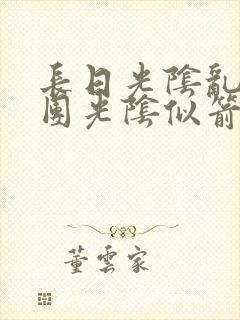 長日光陰亂
團光陰似箭
董雲家